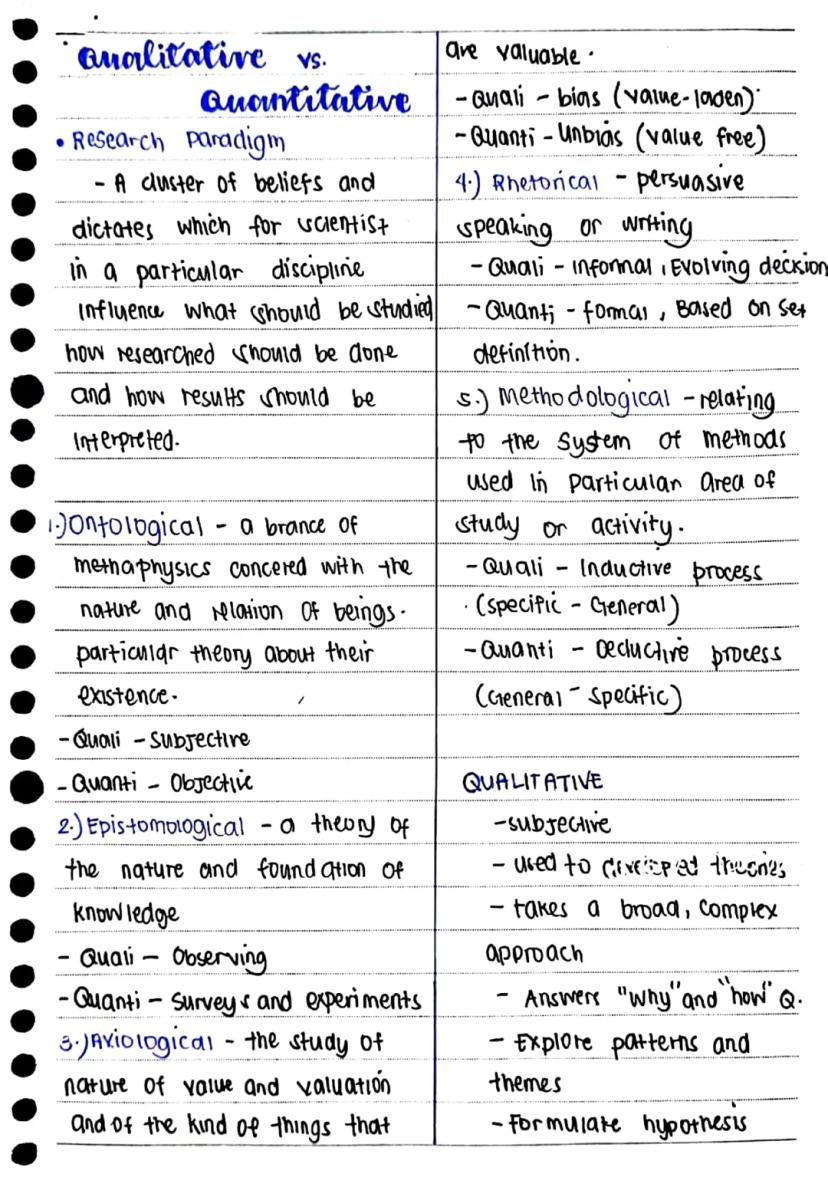 Qualitative vs.
Quantitative
• Research Paradigm
- A cluster of beliefs and
dictates which for scientist
in a particular discipline
influence what should be studied
how researched should be done
and how results should be
interpreted.
1.) Ontological - a brance of
methaphysics concered with the
nature and relation of beings.
particular theory about their
existence.
- Quali - Subjective
- Quanti - Objective
2.) Epistomological - a theory of
the nature and foundation of
knowledge
- Quali - Observing
- Quanti - surveys and experiments
3.) Axiological - the study of
nature of value and valuation
and of the kind of things that
are valuable.
- Quali - bias (value-laden)
- Quanti - Unbias (value free)
4.) Rhetorical - persuasive
speaking or writing
- Quali - Informal, Evolving decision
- Quanti - formal, Based on set
definition.
5.) Methodological - relating
to the system of methods
used in particular area of
study or activity.
- Quali - Inductive process
(specific - General)
- Quanti - Deductive process
(General - Specific)
QUALITATIVE
- subjective
- used to developed theories
- takes a broad, complex
approach
- Answers "why" and "how" Q.
- Explore patterns and
themes
- Formulate hypothesis